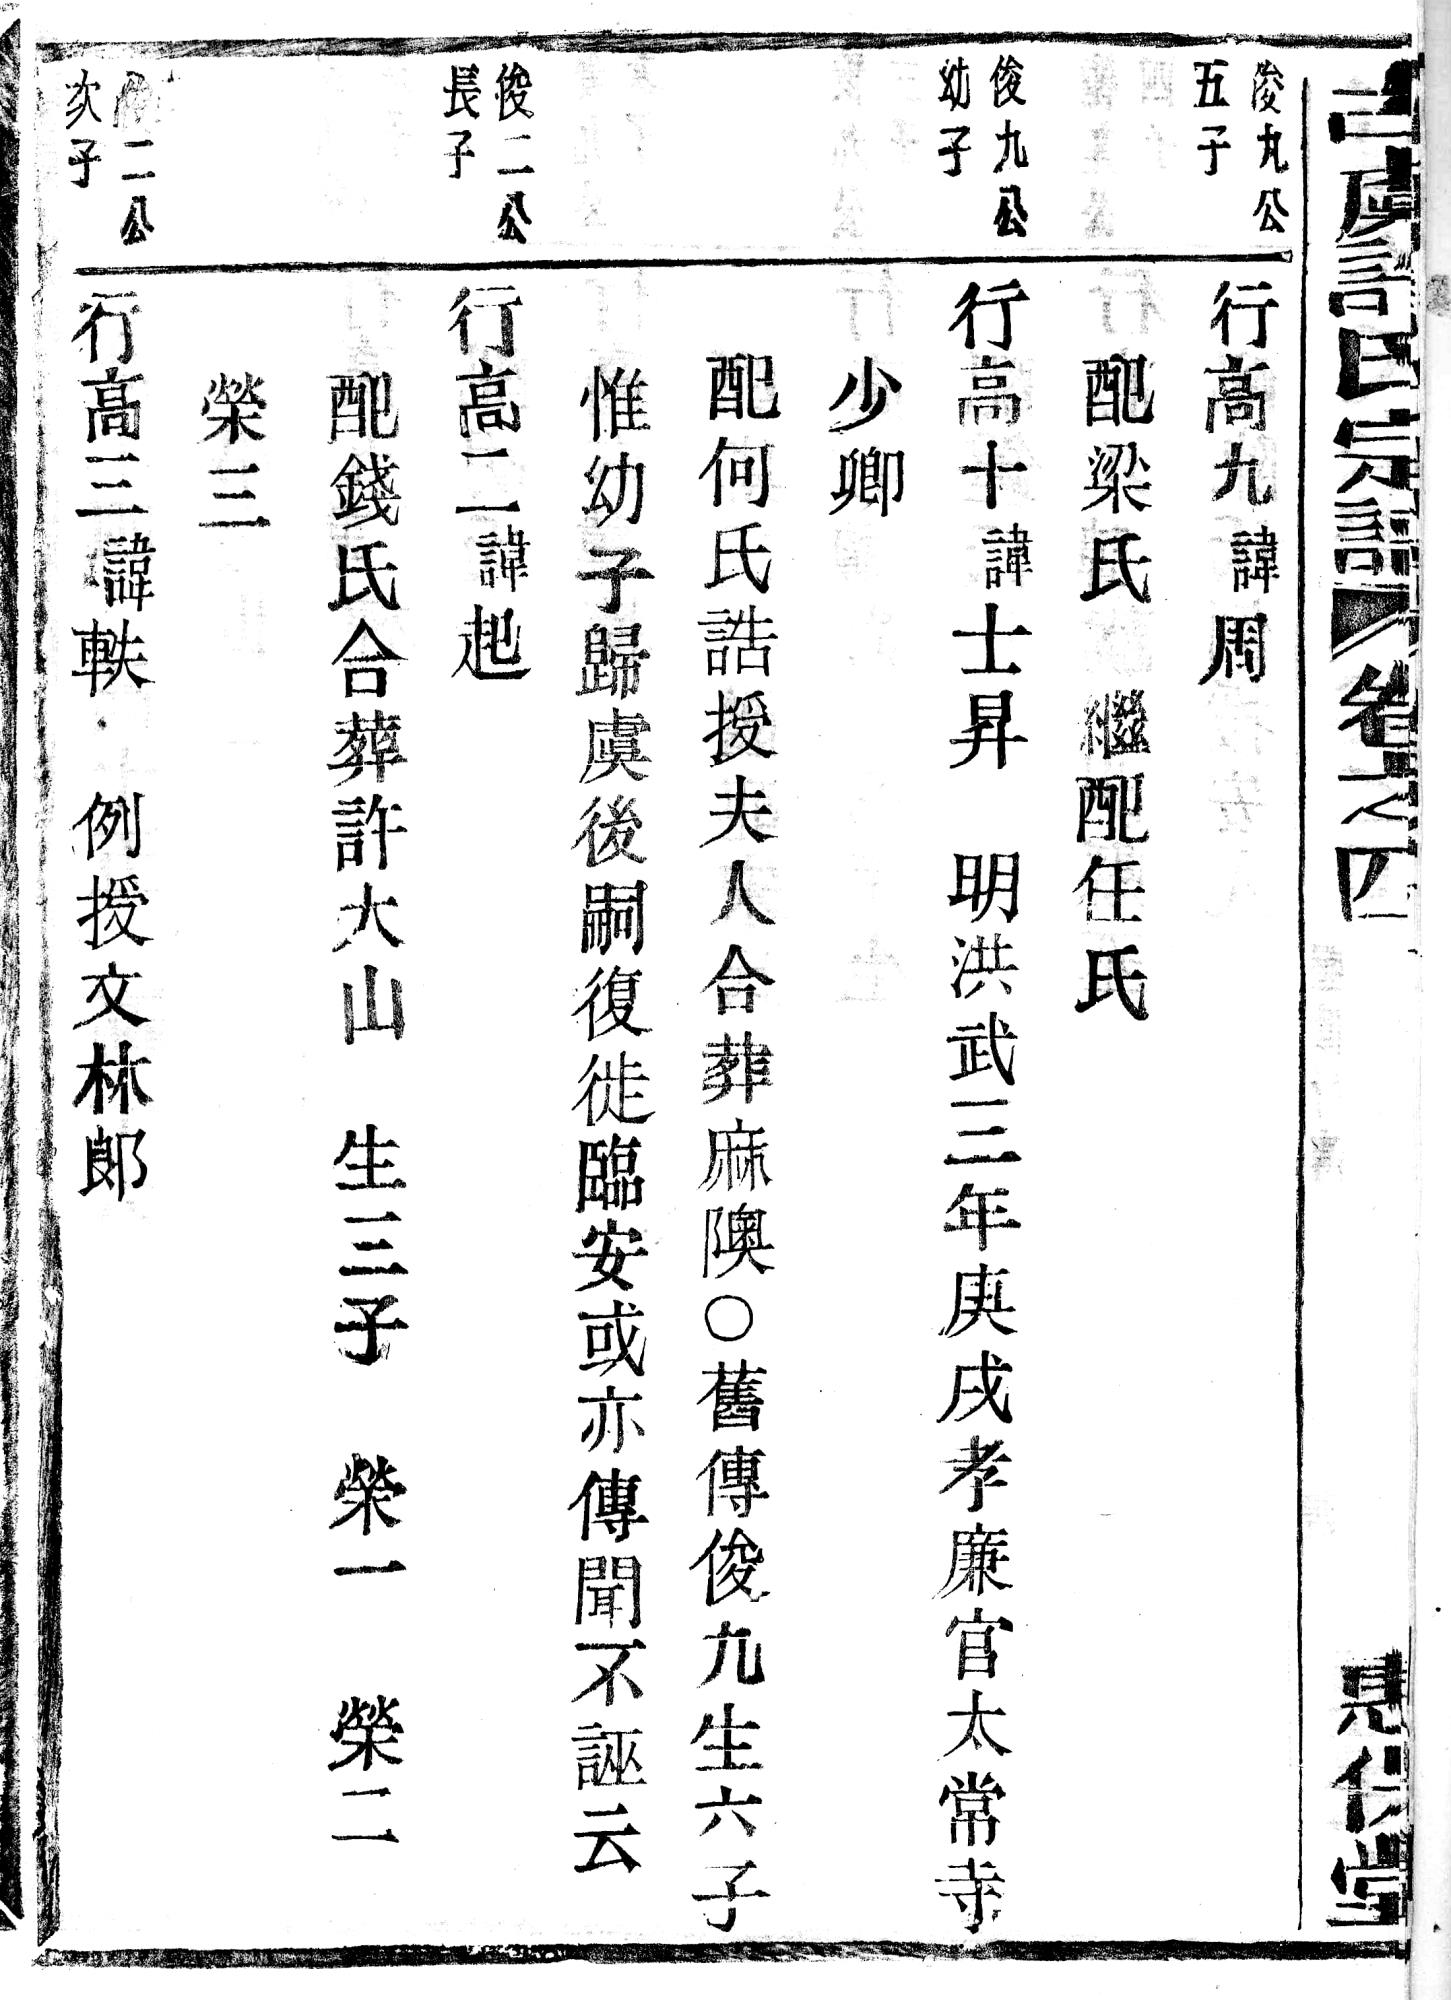 古虞許氏宗譜 卷之四
俊九公
五子
行高九諱周
配梁氏 繼配任氏
俊九公
幼子
行高十諱士昇 明洪武三年庚戌孝廉官太常寺
少卿
配何氏誥授夫人合葬麻隩○舊傳俊九生六子
惟幼子歸虞後嗣復徙臨安或亦傳聞不誣云
俊二公
長子
行高二諱起
配錢氏合葬許大山 生三子 榮一 榮二
榮三
俊二公
次子
行高三諱軼 例授文林郎